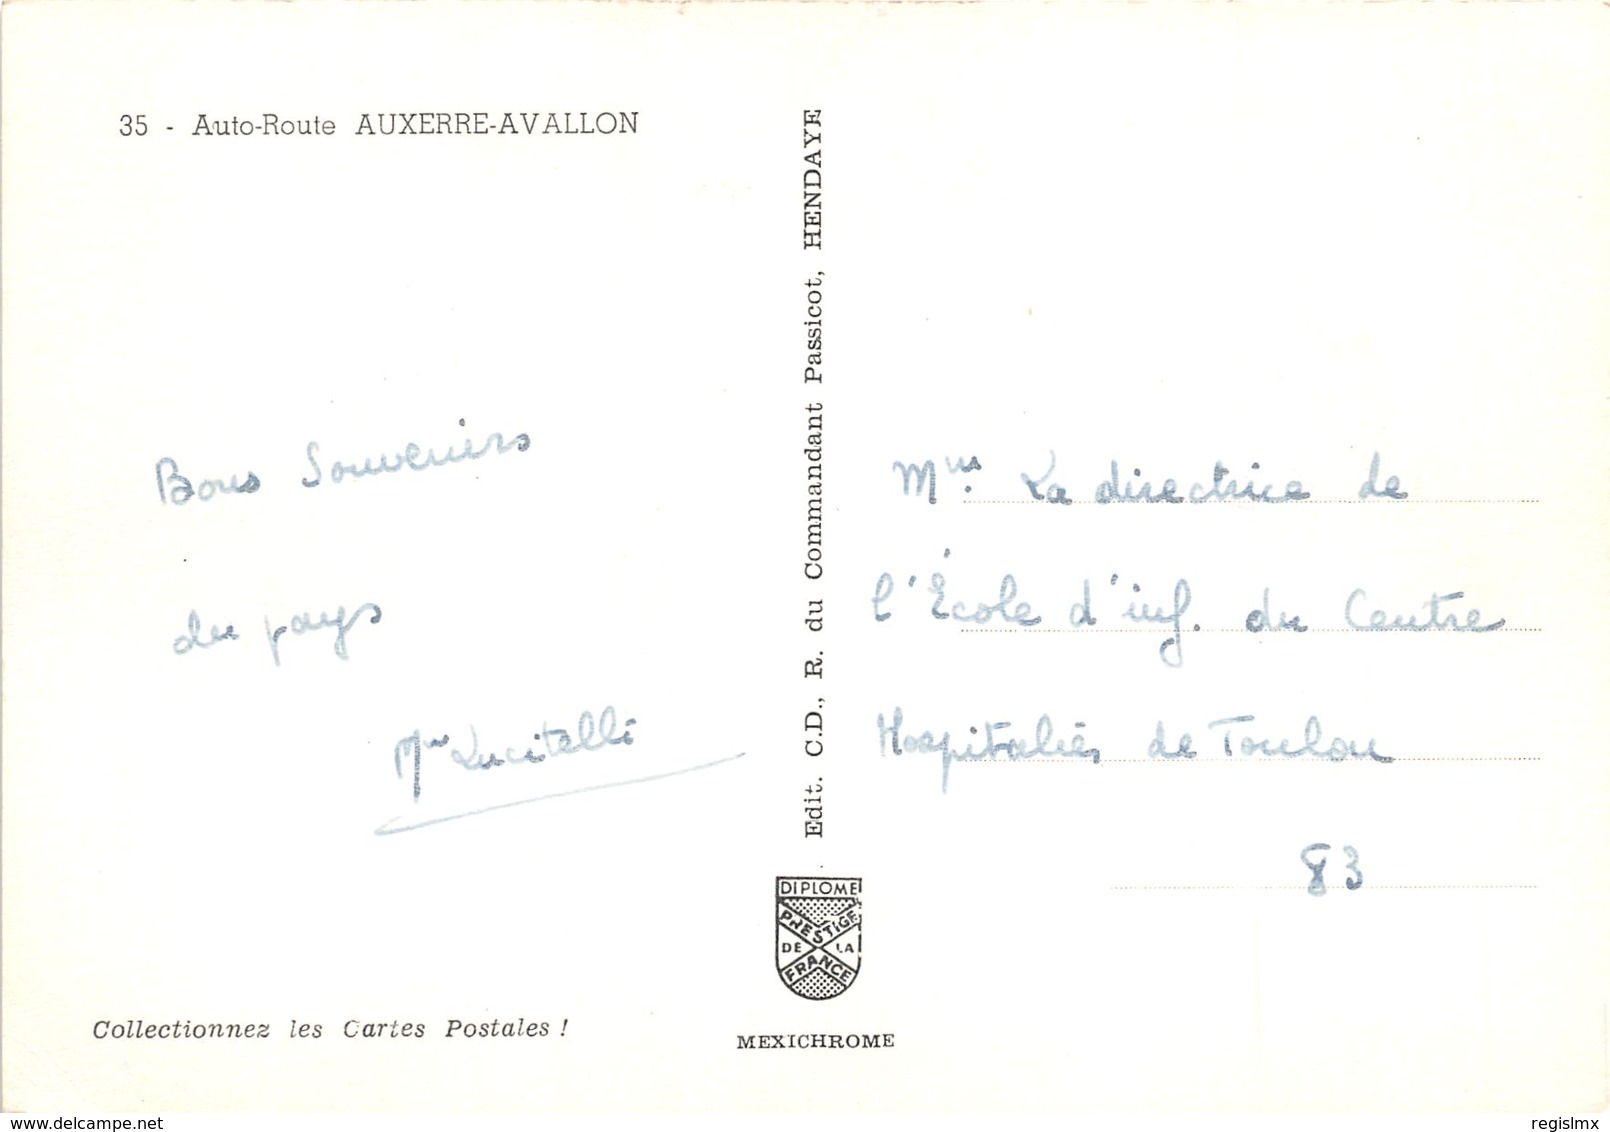 35 - Auto-Route AUXERRE-AVALLON
Bons Souvenirs
du pays
Mme Lucitelli
Collectionnez les Cartes Postales !
Edit. C.D., R. du Commandant Passicot, HENDAYE
DIPLOME
PRESTIGE
DE LA
FRANCE
MEXICHROME
La directrice de
l'École d'inf. du Centre
Hospitalier de Toulon
83
delcampe.net
regislmx